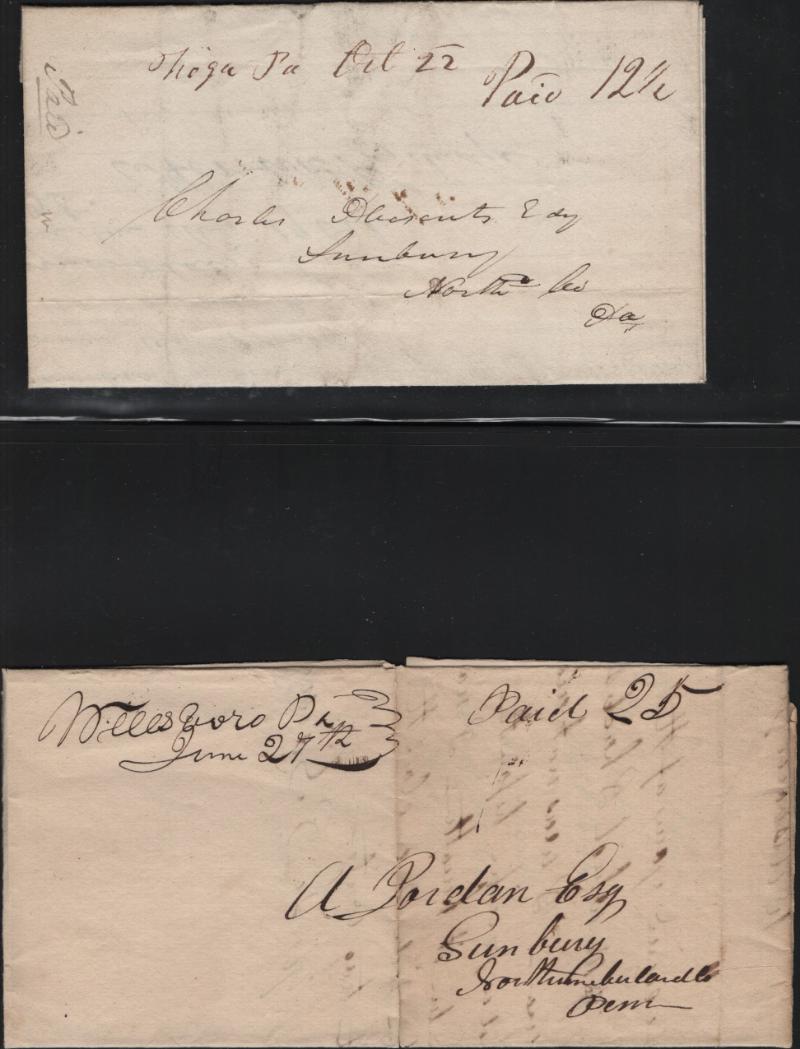 Tioga Pa Oct 22
Paid 12½
Paid
Charles Pleasants Esq
Sunbury
North<sup>d</sup> Co
Pa
Wellsboro Pa
June 27th
Paid 25
A Jordan Esq
Sunbury
Northumberland Co
Penn